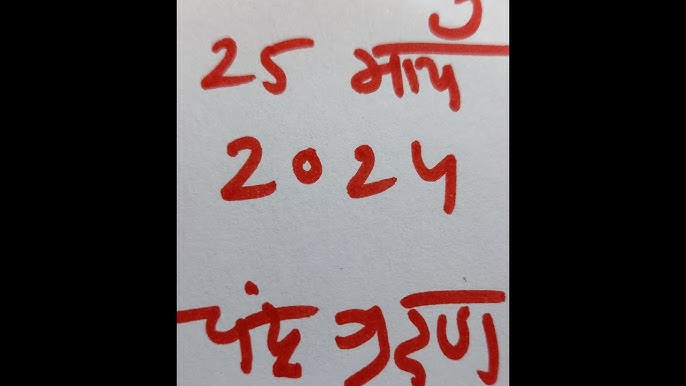 25 मार्च
2024
चंद्र ग्रहण